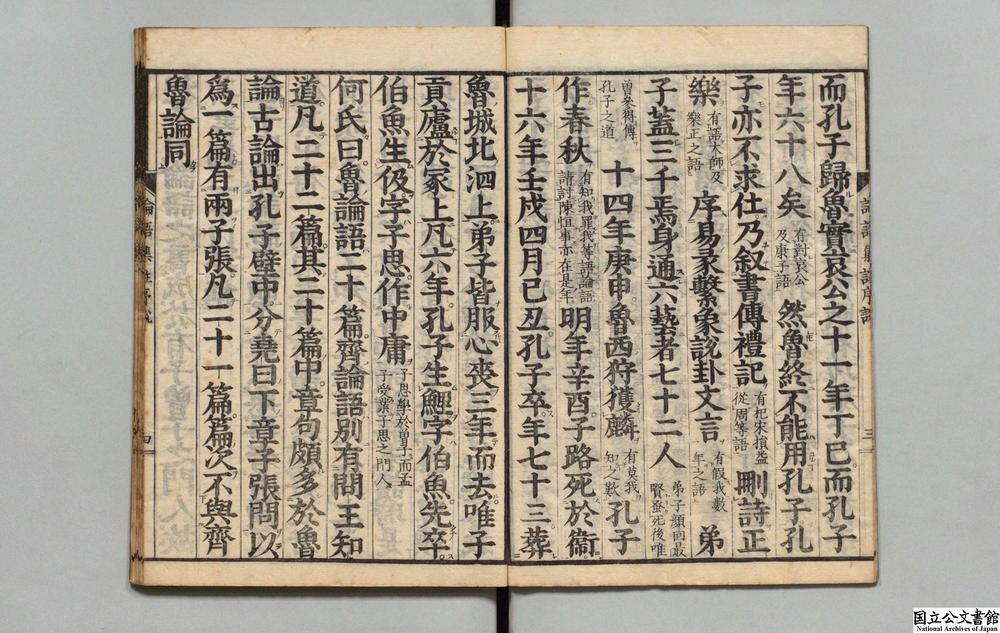 而孔子歸魯實哀公之十一年丁巳而孔子
年六十八矣有對哀公及康子語然魯終不能用孔子孔
子亦不求仕乃叙書傳禮記有杞宋損益從周等語刪詩正
樂有語大師及樂正之語序易彖繫象說卦文言有假我數年之語弟
子蓋三千焉身通六藝者七十二人弟子顏回最賢蚤死後唯
曽參得傳孔子之道十四年庚申魯西狩獲麟有莫我知之歎孔子
作春秋有知我罪我等語論語請討陳恒事亦在是年明年辛酉子路死於衞
十六年壬戌四月己丑孔子卒年七十三葬
魯城北泗上弟子皆服心喪三年而去唯子
貢廬於冢上凡六年孔子生鯉字伯魚先卒
伯魚生伋字子思作中庸子思學於曽子而孟子受業子思之門人
何氏曰魯論語二十篇齊論語別有問王知
道凡二十二篇其二十篇中章句頗多於魯
論古論出孔子壁中分堯曰下章子張問以
爲一篇有兩子張凡二十一篇篇次不與齊
魯論同
論語集註序說
三
論語集註序說
四
国立公文書館
National Archives of Japan